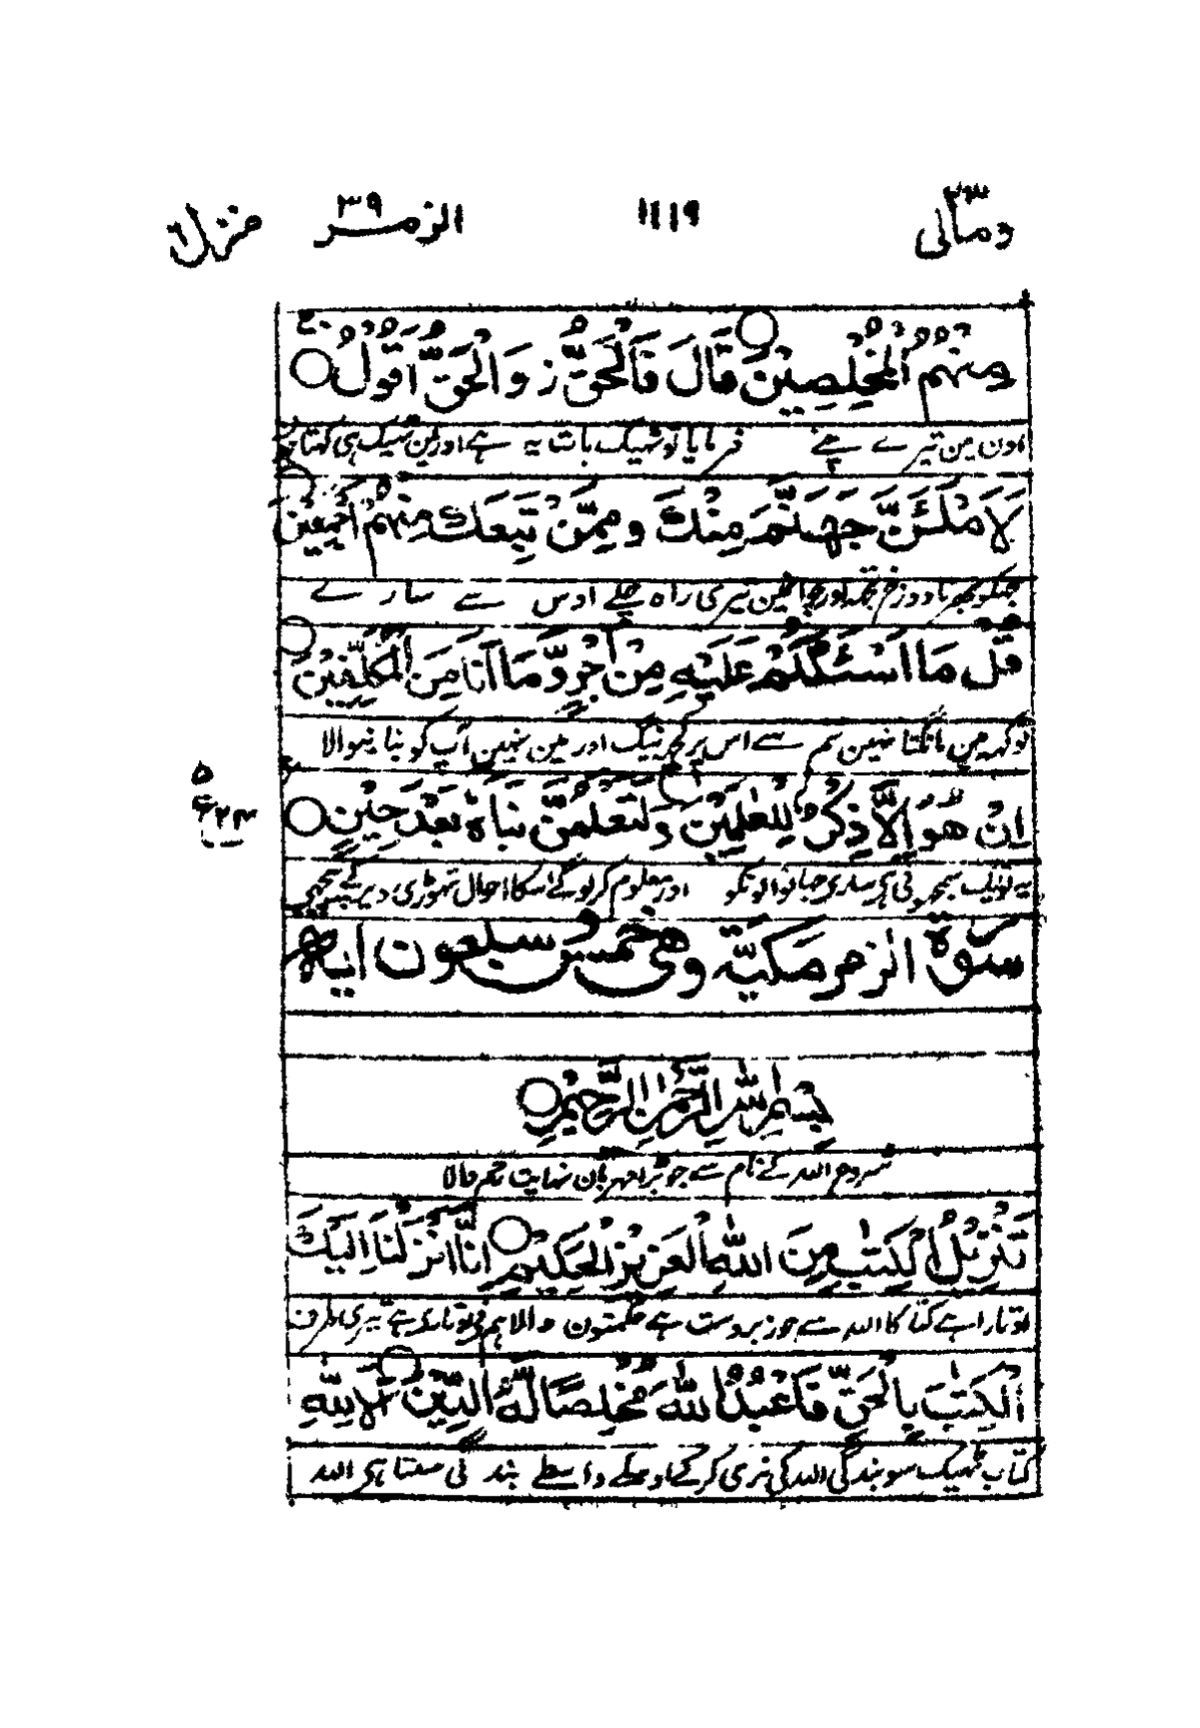 ومالی ۲۳ ۱۱۱۹ الزمر ۳۹ منزل ٦
مِنْهُمُ الْمُخْلِصِيْنَ قَالَ فَالْحَقُّ ز وَالْحَقَّ اَقُوْلُ
اون مین تیرے چنے فرمایا تو ٹھیک بات یہ ہے اور مین ٹھیک ہی کہتا
لَاَمْلَئَنَّ جَهَنَّمَ مِنْكَ وَمِمَّنْ تَبِعَكَ مِنْهُمْ اَجْمَعِيْنَ
دوزخ تیری راہ چلے اوس سے سارے
قُلْ مَا اَسْئَلُكُمْ عَلَيْهِ مِنْ اَجْرٍ وَّمَا اَنَا مِنَ الْمُتَكَلِّفِيْنَ
تو کہہ مین مانگتا نہین تم سے اس پر کچھ نیگ اور مین نہین آپ کو بنانیوالا
اِنْ هُوَ اِلَّا ذِكْرٌ لِّلْعٰلَمِيْنَ وَلَتَعْلَمُنَّ نَبَاَهٗ بَعْدَ حِيْنٍ
یہ تو ایک سمجھوتی ہی ساری جہانوالونکو اور معلوم کرلوگے اسکا احوال تھوڑی دیر کے پیچھے
سورة الزمر مكية وهي خمس وسبعون آية
بِسْمِ اللّٰهِ الرَّحْمٰنِ الرَّحِيْمِ
شروع اللہ کے نام سے جو بڑا مہربان نہایت رحم والا
تَنْزِيْلُ الْكِتٰبِ مِنَ اللّٰهِ الْعَزِيْزِ الْحَكِيْمِ اِنَّا اَنْزَلْنَا اِلَيْكَ
اوتارا ہے کتاب کا اللہ سے جو زبردست ہے حکمتون والا ہم نے اوتاری ہے تیری طرف
الْكِتٰبَ بِالْحَقِّ فَاعْبُدِ اللّٰهَ مُخْلِصًا لَّهُ الدِّيْنَ اَلَا لِلّٰهِ
کتاب ٹھیک سو بندگی اللہ کی نری کر کے اوسکے واسطے بندگی سنتا ہی اللہ